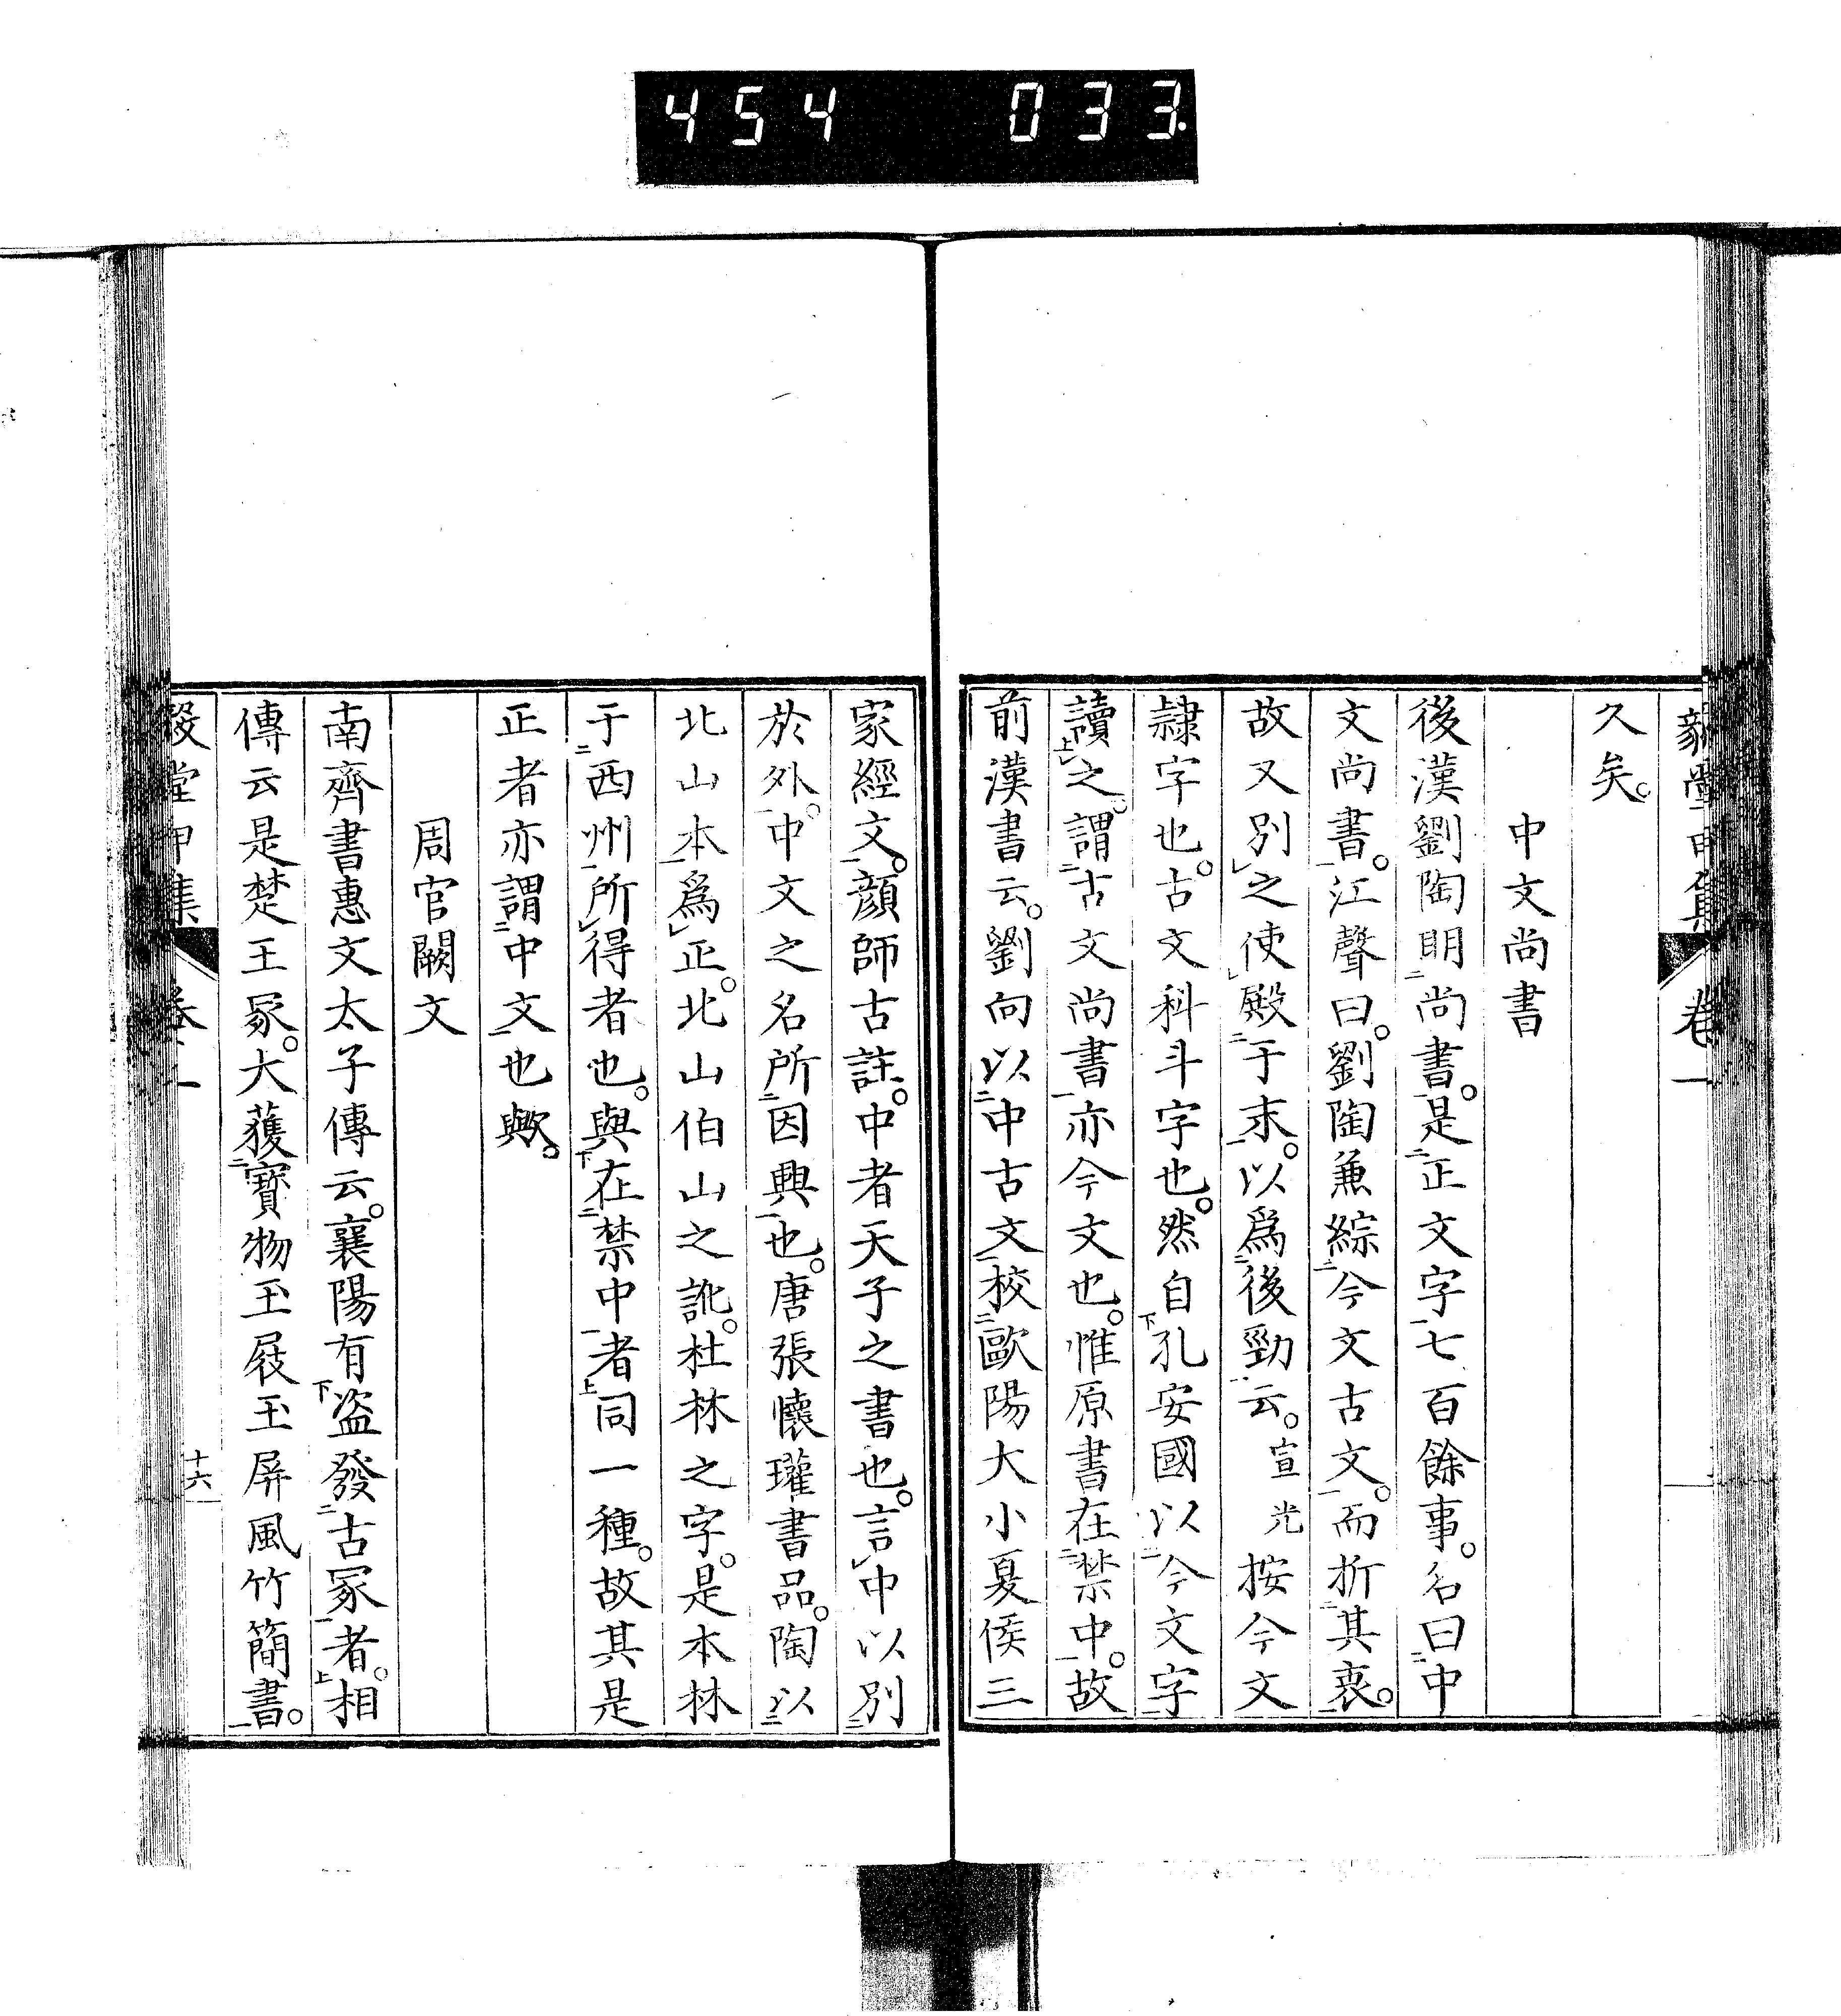 454 033.
久矣。
中文尚書
後漢劉陶明尚書。是正文字七百餘事。名曰中
文尚書。江聲曰。劉陶兼綜今文古文。而折其衷。
故又別之使殿于末。以爲後勁云。宣光按今文
隷字也。古文科斗字也。然自孔安國以今文字
讀之。謂古文尚書亦今文也。惟原書在禁中。故
前漢書云。劉向以中古文校歐陽大小夏侯三
家經文。顏師古註。中者天子之書也。言中以別
於外。中文之名所因興也。唐張懷瓘書品。陶以
北山本爲正。北山伯山之訛。杜林之字。是本林
于西州所得者也。與在禁中者同一種。故其是
正者亦謂中文也歟。
周官闕文
南齊書惠文太子傳云。襄陽有盜發古冢者。相
傳云是楚王冢。大獲寶物玉屐玉屏風竹簡書。
十六